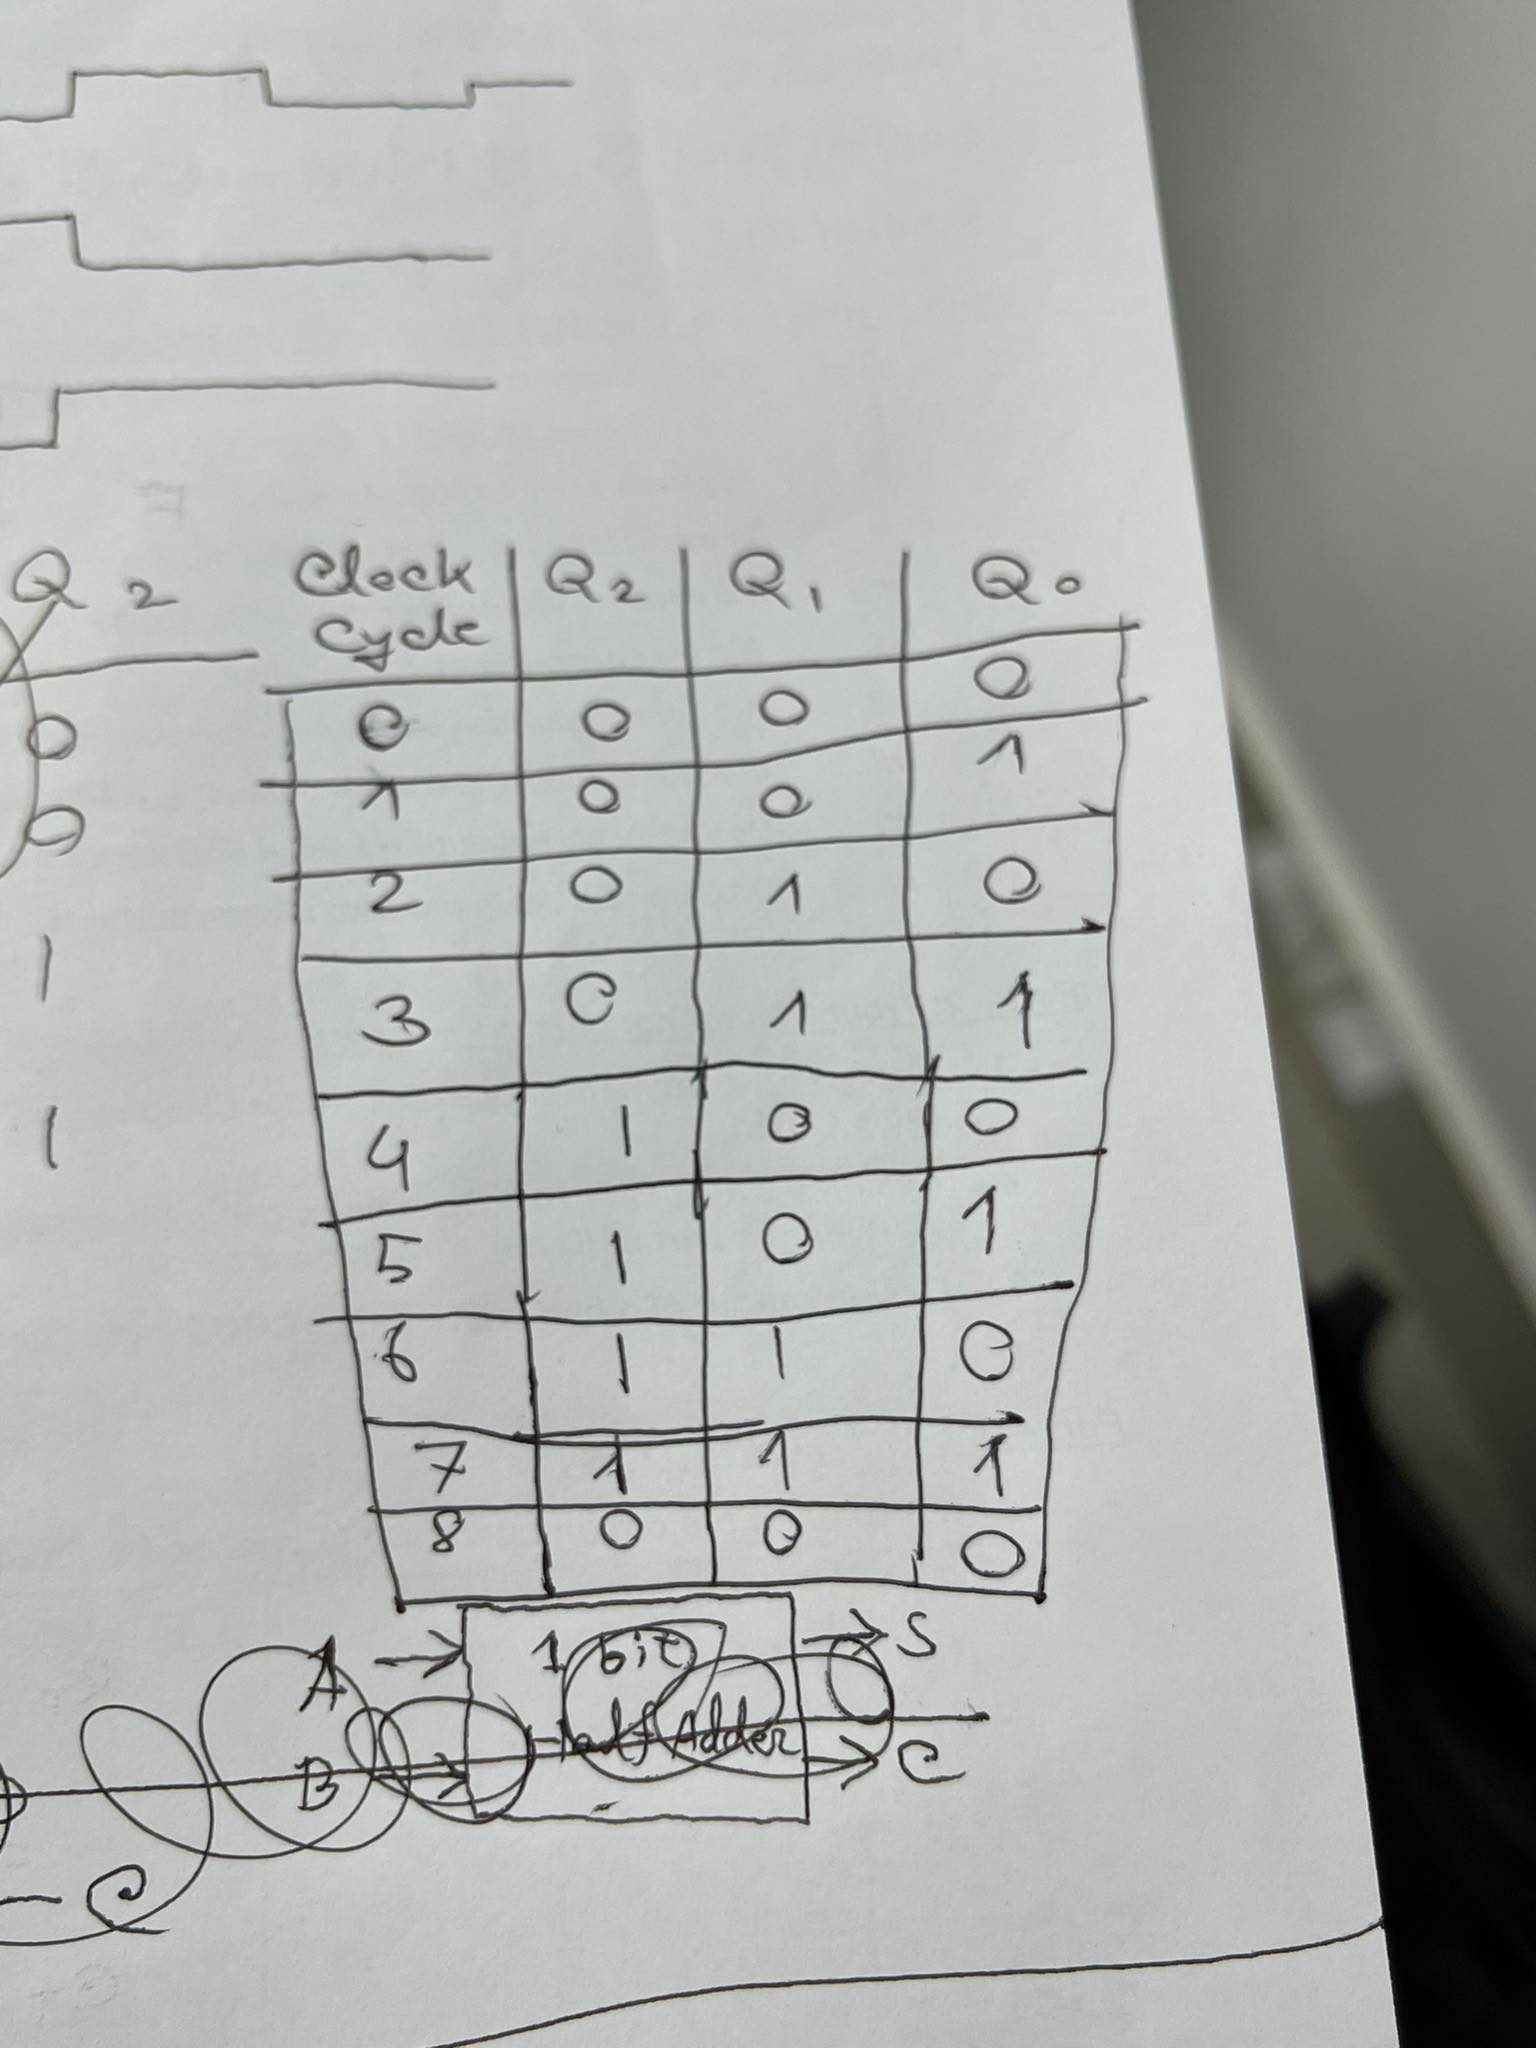 Q2
0
0
1
1
Clock Cycle Q2 Q1 Q0
0 0 0 0
1 0 0 1
2 0 1 0
3 0 1 1
4 1 0 0
5 1 0 1
6 1 1 0
7 1 1 1
8 0 0 0
A 1 bit S
B Half Adder C
C